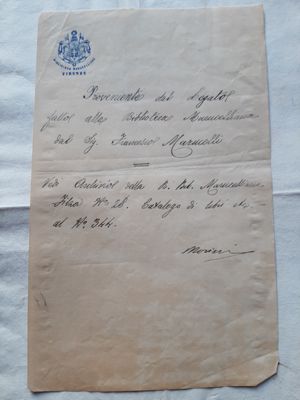 BIBLIOTECA MARUCELLIANA
FIRENZE
Proveniente dal Legato
fatto alla Biblioteca Marucelliana
dal Sg. Francesco Marucelli
Vedi Archivio della B. Marucelliana
N.º 28. Catalogo di libri
al N.º 344.